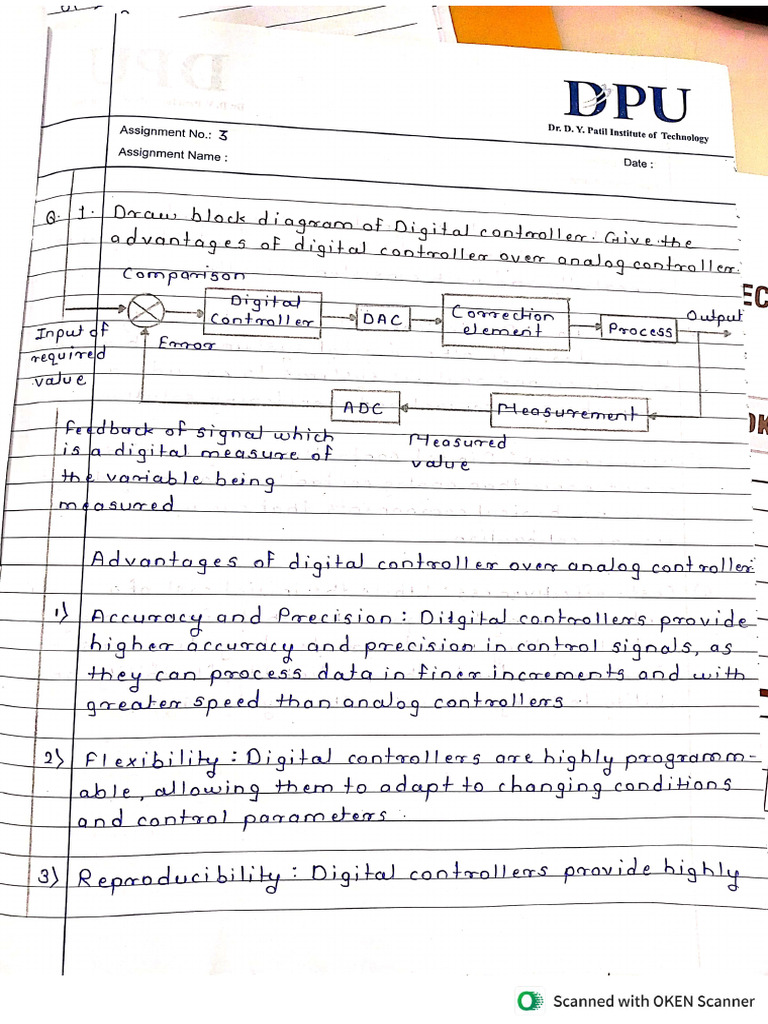 DPU
Dr. D. Y. Patil Institute of Technology
Assignment No.: 3
Assignment Name :
Date :
Q. 1. Draw block diagram of Digital controller. Give the
advantages of digital controller over analog controller.
Comparison
Digital
Controller
DAC
Correction
element
Process
Output
Input of
required
value
Error
ADC
Measurement
Feedback of signal which
is a digital measure of
the variable being
measured
Measured
value
Advantages of digital controller over analog controller
1) Accuracy and Precision : Ditgital controllers provide
higher accuracy and precision in control signals, as
they can process data in finer increments and with
greater speed than analog controllers.
2) Flexibility : Digital controllers are highly programm-
able, allowing them to adapt to changing conditions
and control parameters.
3) Reproducibility : Digital controllers provide highly
EC
Scanned with OKEN Scanner